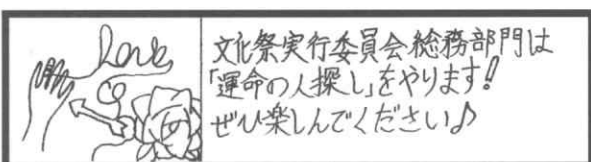 Love
文化祭実行委員会総務部門は
「運命の人探し」をやります!
ぜひ楽しんでください♪